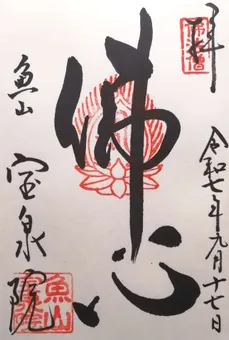 拝
令和七年九月十七日
佛心
魚山
宝泉院
魚山